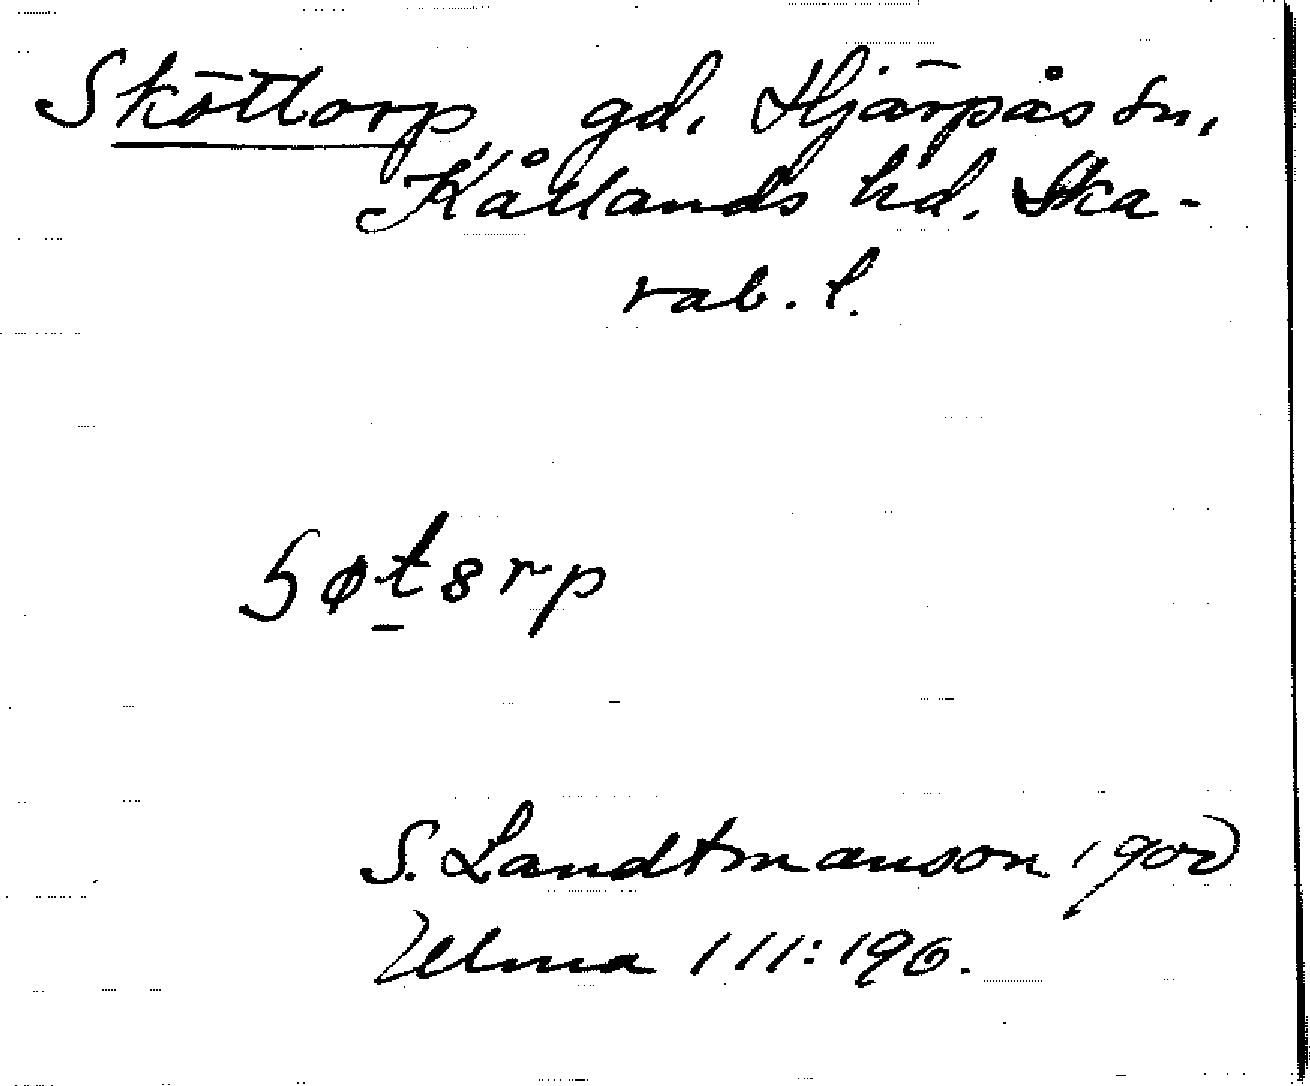 Sköttorp, gd. Hjärpås sn,
Kållands hd. Ska-
rab. l.
S. Landtmanson 1900
Ulma 111:190.